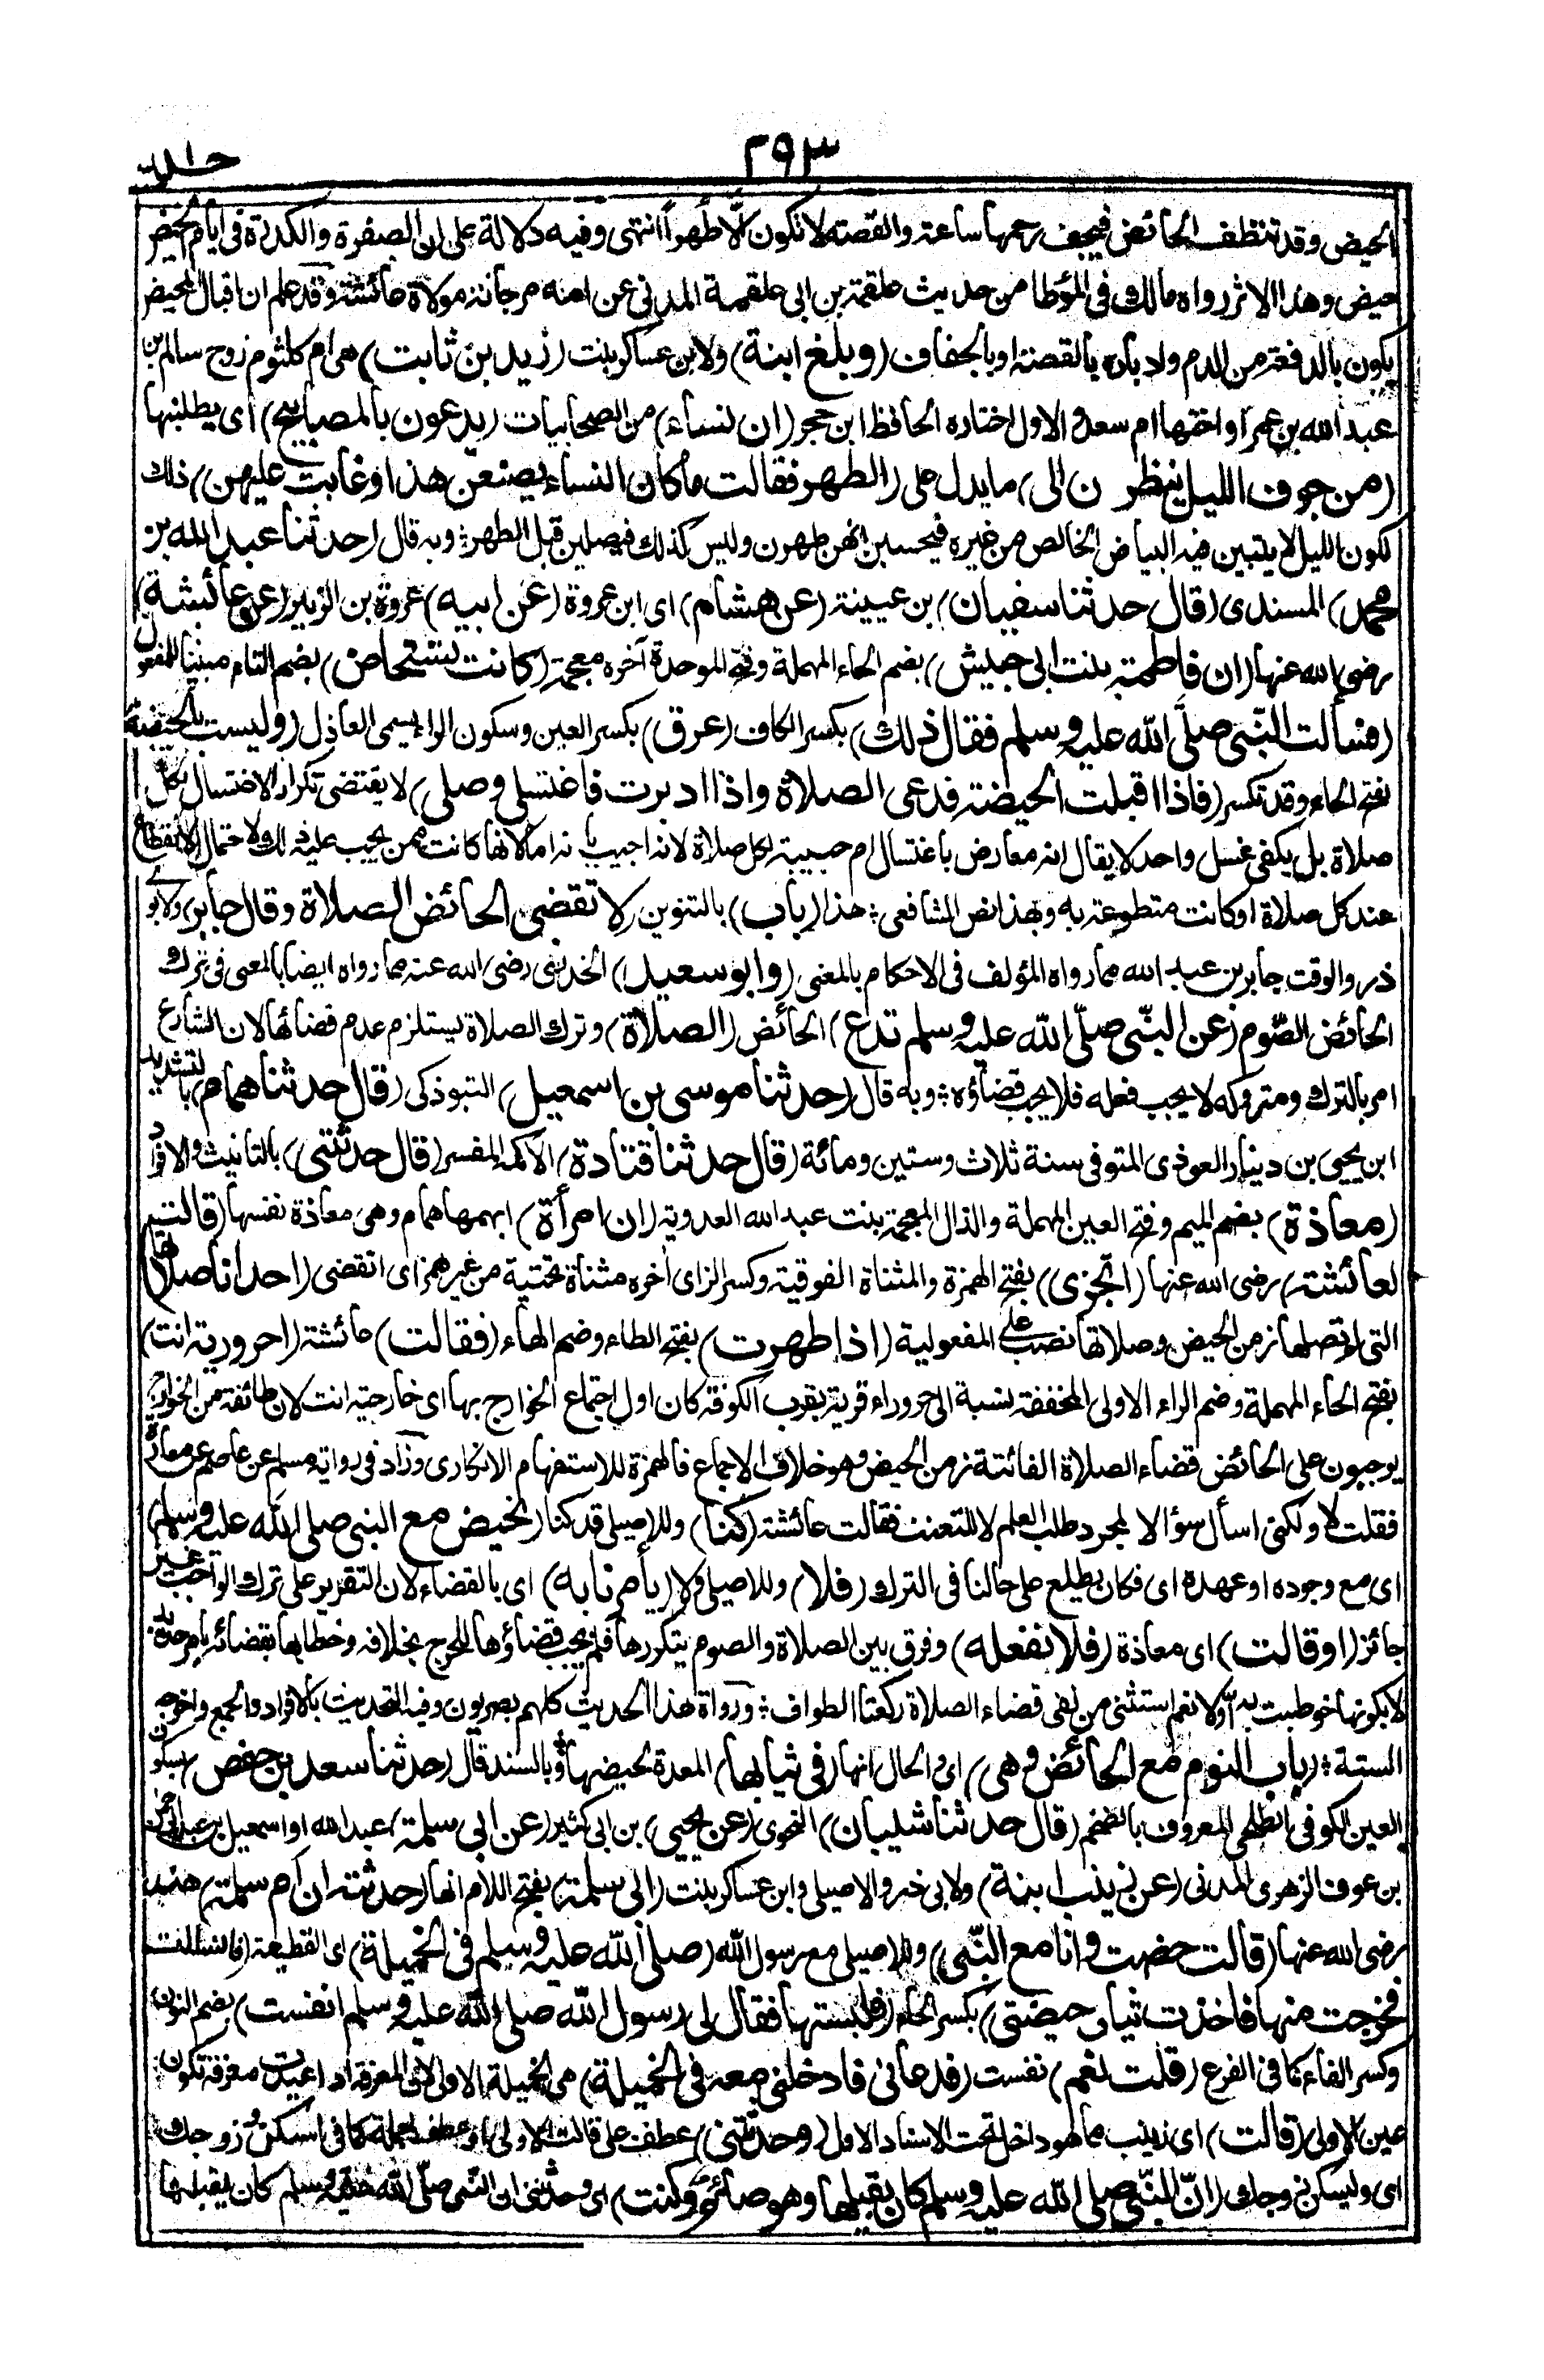 ٢٩٣
الحيض وقد تنظف الحائض فيجف رحمها ساعة والقصة لا تكون الا طهرا انتهى وفيه دلالة على ان الصفرة والكدرة فى ايام الحيض
حيض وهذا الاثر رواه مالك فى الموطا من حديث علقمة بن ابى علقمة المدنى عن امه مرجانة مولاة عائشة وقد علم ان اقبال المحيض
يكون بالدفعة من الدم وادباره بالقصة او بالجفاف (وبلغ ابنة) ولابن عساكر بنت (زيد بن ثابت) هى ام كلثوم زوج سالم بن
عبد الله بن عمر او اختها ام سعد والاول اختاره الحافظ ابن حجر (ان نساء) من الصحابيات (يدعون بالمصابيح) اى يطلبنها
(من جوف الليل ينظرن الى) ما يدل على (الطهر فقالت ما كان النساء يصنعن هذا وعابت عليهن) ذلك
لكون الليل لا يتبين فيه البياض الخالص من غيره فيحسبن انهن طهرن وليس كذلك فيصلين قبل الطهر؛ وبه قال (حدثنا عبد الله بن
محمد) المسندى (قال حدثنا سفيان) بن عيينة (عن هشام) اى ابن عروة (عن ابيه) عروة بن الزبير (عن عائشة)
رضى الله عنها (ان فاطمة بنت ابى حبيش) بضم الحاء المهملة وفتح الموحدة آخره معجمة (كانت تستحاض) بضم التاء مبنيا للمفعول
(فسألت النبى صلى الله عليه وسلم فقال ذلك) بكسر الكاف (عرق) بكسر العين وسكون الراء يسمى العاذل (وليست بالحيضة)
بفتح الحاء وقد تكسر (فاذا اقبلت الحيضة فدعى الصلاة واذا ادبرت فاغتسلى وصلى) لا يقتضى تكرار الاغتسال لكل
صلاة بل يكفى غسل واحد لا يقال انه معارض باغتسال ام حبيبة لكل صلاة لانه اجيب بانه اما لانها كانت ممن يجب عليه ذلك ولاحتمال الانقطاع
عند كل صلاة او كانت متطوعة به وبهذا نص الشافعى؛ هذا (باب) بالتنوين (لا تقضى الحائض الصلاة وقال جابر) ولابو
ذر والوقت جابر بن عبد الله مما رواه المؤلف فى الاحكام بالمعنى (وابو سعيد) الخدرى رضى الله عنه مما رواه ايضا بالمعنى فى ترك
الحائض الصوم (عن النبى صلى الله عليه وسلم تدع) الحائض (الصلاة) وترك الصلاة يستلزم عدم قضائها لان الشارع
امر بالترك ومتروكه لا يجب فعله فلا يجب قضاؤه؛ وبه قال (حدثنا موسى بن اسمعيل) التبوذكى (قال حدثنا همام) بالتشديد
ابن يحيى بن دينار العوذى المتوفى سنة ثلاث وستين ومائة (قال حدثنا قتادة) الاكمه المفسر (قال حدثتنى) بالتانيث والافراد
(معاذة) بضم الميم وفتح العين المهملة والذال المعجمة بنت عبد الله العدوية (ان امرأة) ابهمها همام وهى معاذة نفسها (قالت
لعائشة) رضى الله عنها (اتجزى) بفتح الهمزة والمثناة الفوقية وكسر الزاى آخره مثناة تحتية من غير همز اى اتقضى (احدانا صلاتها)
التى لم تصلها زمن الحيض وصلاتها نصب على المفعولية (اذا طهرت) بفتح الطاء وضم الهاء (فقالت) عائشة (احرورية انت)
بفتح الحاء المهملة وضم الراء الاولى المخففة نسبة الى حروراء قرية بقرب الكوفة كان اول اجتماع الخوارج بها اى خارجية انت لان طائفة من الخوارج
يوجبون على الحائض قضاء الصلاة الفائتة زمن الحيض وهو خلاف الاجماع فالهمزة للاستفهام الانكارى وزاد فى رواية مسلم عن عاصم عن معاذة
فقلت لا ولكنى اسأل سؤالا لمجرد طلب العلم لا للتعنت فقالت عائشة (كنا) وللاصيلى قد كنا (نحيض مع النبى صلى الله عليه وسلم)
اى مع وجوده او عهده اى فكان يطلع على حالنا فى الترك (فلا) وللاصيلى ولا (يأمرنا به) اى بالقضاء لان التقرير على ترك الواجب غير
جائز (او قالت) اى معاذة (فلا نفعله) وفرق بين الصلاة والصوم بتكررها فلم يجب قضاؤها للحرج بخلافه وخطابها بقضائه بامر جديد
لا بكونها خوطبت به اولا نعم استثنى من نفى قضاء الصلاة ركعتا الطواف؛ ورواة هذا الحديث كلهم بصريون وفيه التحديث بالافراد والجمع واخرجه
الستة؛ (باب النوم مع الحائض وهى) اى والحال انها (فى ثيابها) المعدة لحيضها؛ وبالسند قال (حدثنا سعد بن حفص) بسكون
العين الكوفى الطلحى المعروف بالضخم (قال حدثنا شيبان) النحوى (عن يحيى) بن ابى كثير (عن ابى سلمة) عبد الله او اسمعيل بن عبد الرحمن
بن عوف الزهرى المدنى (عن زينب ابنة) ولابى ذر والاصيلى وابن عساكر بنت (ابى سلمة) بفتح اللام انها (حدثته ان ام سلمة) هند
رضى الله عنها (قالت حضت وانا مع النبى) وللاصيلى مع رسول الله (صلى الله عليه وسلم فى الخميلة) اى القطيعة (فانسللت
فخرجت منها فاخذت ثياب حيضتى) بكسر الحاء (فلبستها فقال لى رسول الله صلى الله عليه وسلم انفست) بضم النون
وكسر الفاء كما فى الفرع (قلت نعم) نفست (فدعانى فادخلنى معه فى الخميلة) هى الخميلة الاولى لان المعرفة اذا اعيدت معرفة تكون
عين الاولى (قالت) اى زينب مما هو داخل تحت الاسناد الاول (وحدثتنى) عطف على قالت الاولى او عطف جملة كما فى اسكن وزوجك
اى وليسكن زوجك (ان النبى صلى الله عليه وسلم كان يقبلها وهو صائم وكنت) اى وحدثتنى ان النبى صلى الله عليه وسلم كان يقبلها